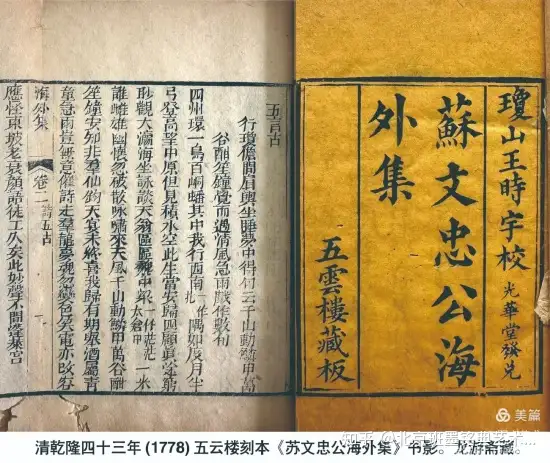 瓊山王時宇校 光華堂發兌
蘇文忠公海
外集
五雲樓藏板
五言古
行瓊儋間肩輿坐睡夢中得句云千山動鱗甲萬
谷酣笙鐘覺而遇清風急雨戲作數句
四州環一島百峒蟠其中我行西南一作隅如度月半
弓登高望中原但見積水空此生當安歸四顧眞途窮
眇觀大瀛海坐詠談天翁區區魏中梁一作茫茫太倉中一米
誰雌雄幽懷忽破散咏嘯來天風千山動鱗甲萬谷酣
笙鐘安知非羣仙鈞天宴未終喜我歸有期舉酒屬青
童急雨豈無意催詩走羣龍夢魂忽變色笑電亦改容
海外集 卷二 詩五古
應怪東坡老衰顏語徒工久矣此妙聲不聞蓬萊宮
美篇
知乎
清乾隆四十三年 (1778) 五云楼刻本《苏文忠公海外集》书影。龙游斋藏。